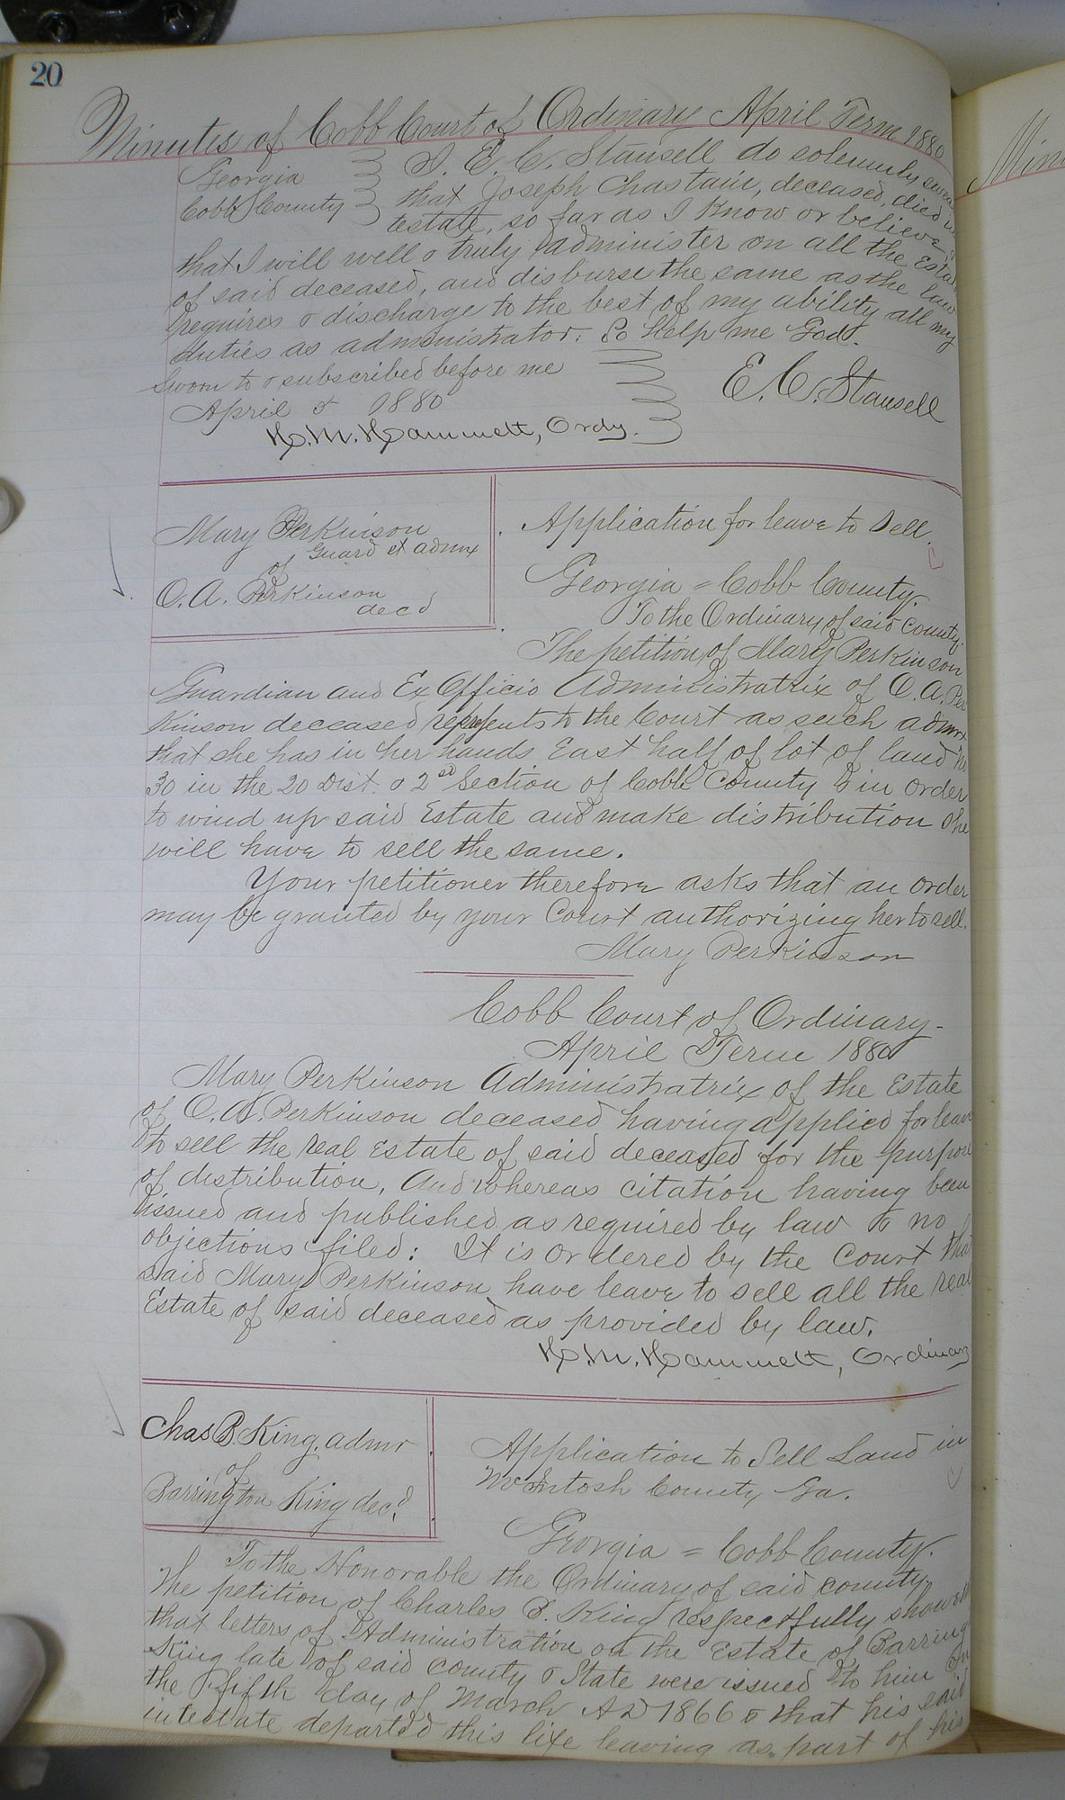 20
Minutes of Cobb Court of Ordinary April Term 1880
Georgia
Cobb County
I. E. C. Stansell do solemnly swear
that Joseph Chastain, deceased, died
testate, so far as I know or believe
that I will well & truly administer on all the Estate
of said deceased, and disburse the same as the law
requires & discharge to the best of my ability all my
duties as administrator. So help me God.
Sworn to & subscribed before me
April 5 1880
E. C. Stansell
H. M. Hammett, Ordy.
Mary Perkinson
Guard et admx
of
O. A. Perkinson
decd
Application for leave to Sell.
Georgia = Cobb County.
To the Ordinary of said County.
The petition of Mary Perkinson
Guardian and Ex Officio Administratrix of O. A. Per
kinson deceased represents to the Court as such admrx
that she has in her hands East half of lot of land No
30 in the 20 Dist. & 2nd Section of Cobb County & in order
to wind up said Estate and make distribution she
will have to sell the same.
Your petitioner therefore asks that an order
may be granted by your Court authorizing her to sell.
Mary Perkinson
Cobb Court of Ordinary-
April Term 1880
Mary Perkinson Administratrix of the Estate
of O. A. Perkinson deceased having applied for leave
to sell the real Estate of said deceased for the purpose
of distribution, And whereas citation having been
issued and published as required by law & no
objections filed: It is ordered by the Court that
said Mary Perkinson have leave to sell all the real
Estate of said deceased as provided by law.
H. M. Hammett, Ordinary
Chas B. King, admr
of
Barrington King decd.
Application to Sell Land in
McIntosh County Ga.
Georgia = Cobb County.
To the Honorable the Ordinary of said county
The petition of Charles B. King respectfully showeth
that letters of Administration on the Estate of Barring
King late of said county & State were issued to him on
the fifth day of March AD 1866 & that his said
intestate departed this life leaving as part of his
Min